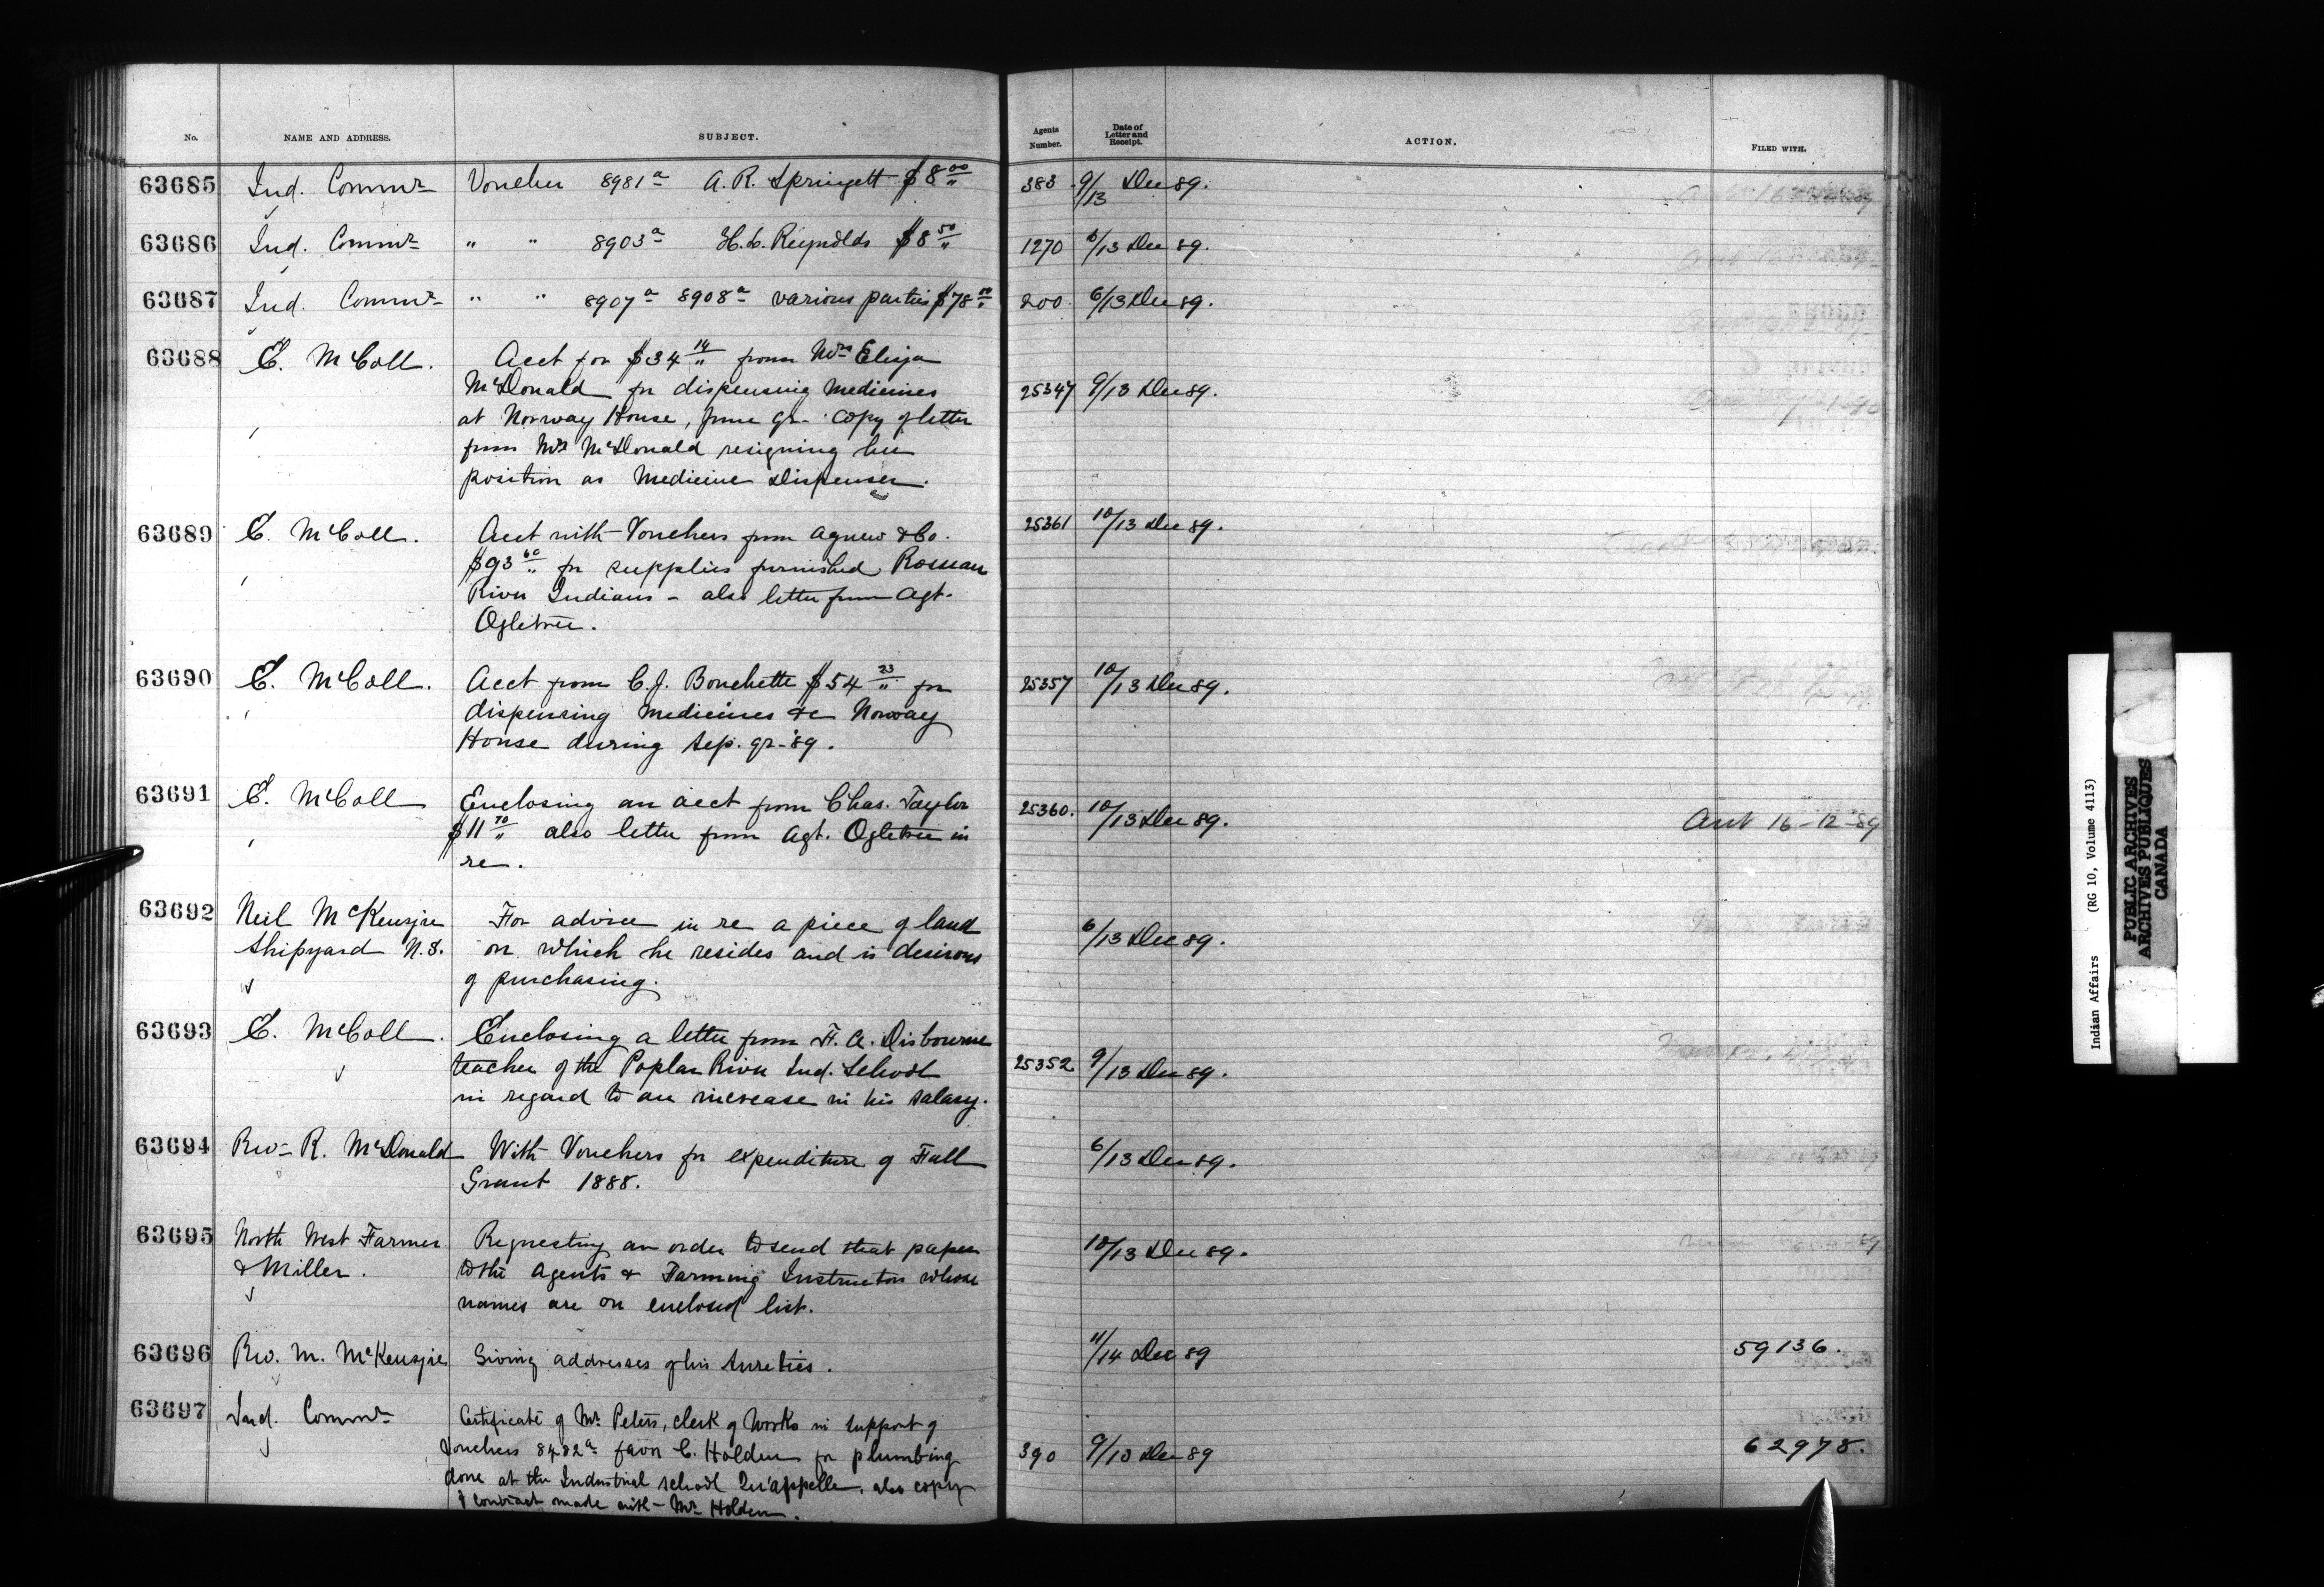 No. NAME AND ADDRESS. SUBJECT. Agents Number. Date of Letter and Receipt. ACTION. FILED WITH.
63685 Ind. Commr Voucher 8981a A. R. Springett $8 00/" 383 9/13 Dec 89.
63686 Ind. Commr " " 8903a Reynolds $8 50/" 1270 6/13 Dec 89.
63687 Ind. Commr " " 8907a 8908a various parties $78 200 6/13 Dec 89.
63688 E. McColl. Acct for $34 14/" from Mrs Eliza
McDonald for dispensing medicines 25347 9/13 Dec 89.
at Norway House, June qr- Copy of letter
from Mrs McDonald resigning her
position as Medicine Dispenser.
63689 E. McColl. Acct with Vouchers from Agnew & Co. 25361 10/13 Dec 89.
$93 60/" for supplies furnished Roseau
River Indians - also letter from Agt.
Ogletree.
63690 E. McColl. Acct from C. J. Bouchette $54 23/" for 25357 10/13 Dec 89.
dispensing medicines &c Norway
House during Sep. qr- '89.
63691 E. McColl Enclosing an acct from Chas. Taylor 25360. 10/13 Dec 89.
$11 70/" also letter from Agt. Ogletree in Acct 16-12-89
re.
63692 Neil McKenzie For advice in re a piece of land
Shipyard N.S. on which he resides and is desirous 6/13 Dec 89.
of purchasing.
63693 E. McColl. Enclosing a letter from F. A. Disbourne
teacher of the Poplar River Ind. School 25352. 9/13 Dec 89.
in regard to an increase in his salary.
63694 Rev- R. McDonald With Vouchers for expenditure of Fall 6/13 Dec 89.
Grant 1888.
63695 North West Farmer Requesting an order to send that paper 10/13 Dec 89.
& Miller. to the Agents & Farming Instructors whose
names are on enclosed list.
63696 Rev. M. McKenzie Giving addresses of his Sureties. 11/14 Dec 89 59136.
63697 Ind. Commr Certificate of Mr. Peters, clerk of Works in support of
Vouchers 8482a favor C. Holden for plumbing 390 9/13 Dec 89 62978.
done at the Industrial School Qu'appelle, also copy
of contract made with - Mr Holden.
Indian Affairs (RG 10, Volume 4113)
PUBLIC ARCHIVES
ARCHIVES PUBLIQUES
CANADA